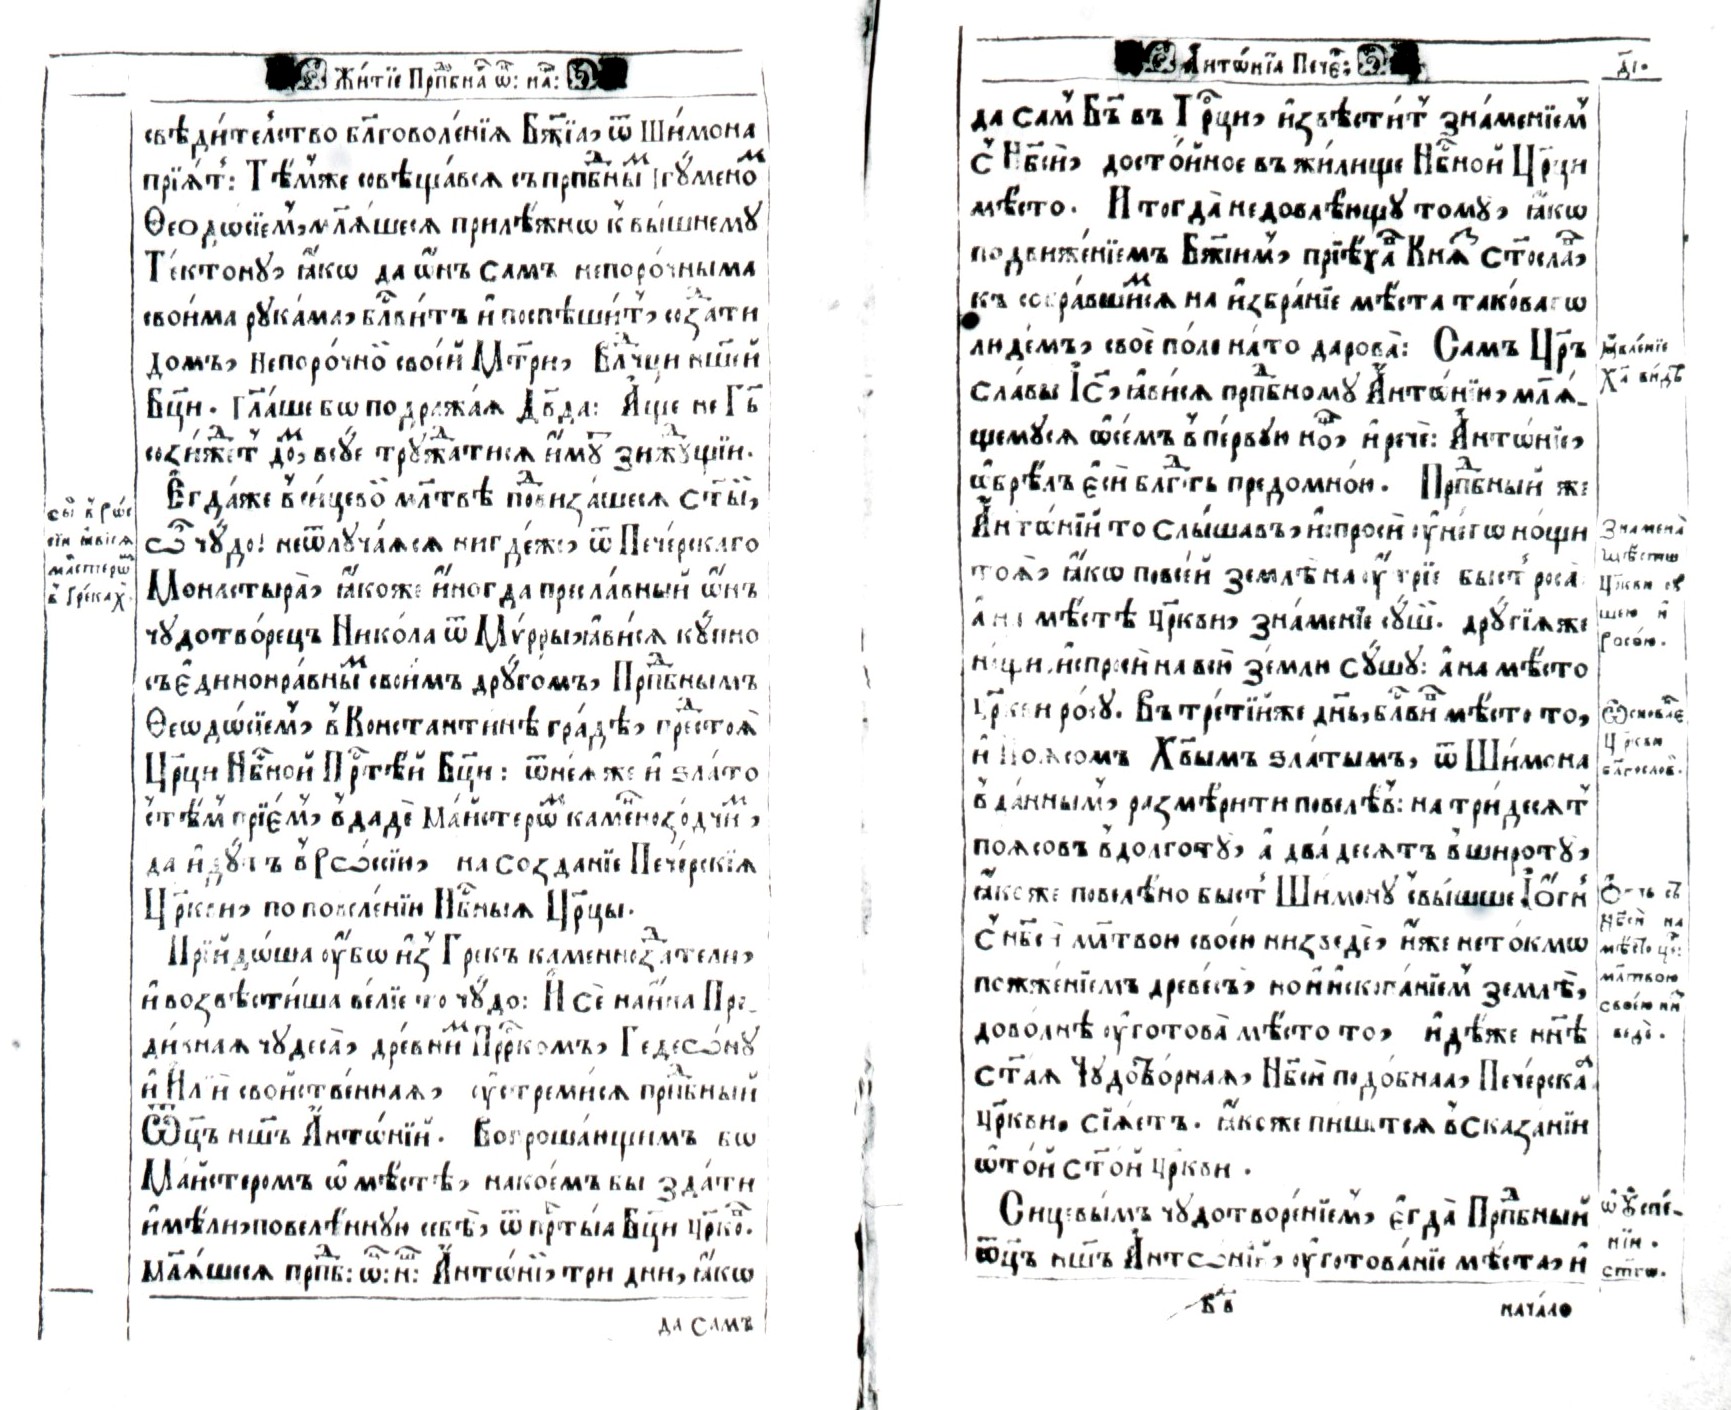 Жи́тїе Прпⷣбнаⷢ҇ ѿ: на́ⷲ:
свѣди́телство бл҃говоле́нїѧ Бж҃їѧ, ѿ Ши́мона
прїѧ́т: Тѣ́мже совѣща́всѧ съ прпⷣбныⷨ Ігꙋ́меноⷨ
Ѳеодѡ́сїемъ, мл҃ѧ́шесѧ прилѣ́жнѡ к̾ вы́шнемꙋ
Те́ктонꙋ, ꙗ҆́кѡ да ѻ҆́нъ самъ непоро́чныма
свои́ма рꙋка́ма, блⷭ҇ви́тъ и҆ поспѣши́т̾, созⷣати
домъ, непоро́чноⷭ҇ свое́й Мт҃ри, Влⷣчци нш҃ей
Бц҃и. гл҃аше бо подража́ѧ Дв҃да: А҆́ще не Гь҃
сози́жⷣет̾ доⷨ, всꙋ́е трꙋжⷣа́тисѧ и҆́мꙋт̾ зи́жⷣꙋщїи.
Е҆гда́же в̾ си́цевоⷨ мл҃твѣ поⷣвиза́шесѧ ст҃ы́й,
Ѽ чꙋ́до! неѿлꙋча́ѧсѧ нигдѣ́же, ѿ Пече́рскаго
Монастырѧ̀, ꙗ҆́коже и҆ногда пресла́вный ѻ҆́нъ
чꙋдотво́рецъ Нико́ла ѿ Мѵ́рры, ꙗ҆ви́сѧ кꙋ́пно
съ є҆динонра́вныⷨ свои́мъ дрꙋ́гомъ, Прпⷣбнымъ
Ѳеѡдѡ́сїем̾, в̾ Константи́нѣ гра́дѣ, преⷣстоѧ̀
Цр҃ци Нбⷭ҇ной Прⷭ҇тѣ́й Бц҃и: ѿне́ѧже и҆ зла́то
с̾ тѣ́м̾ прїе́м̾, в̾дадѐ Ма́йстерѡⷨ каме́ноⷥзо́дчиⷨ,
да и҆дꙋ́тъ в̾ Рѡссі́и, на созда́нїе Пече́рскїѧ
Цр҃кви, по повеле́нїю Нбⷭ҇ныѧ Цр҃цы.
Прїидо́ша ᲂу҆̀бо и҆з̾ Грекъ каменноⷥзⷣа́тели,
и҆ возвѣсти́ша ве́лїе то чꙋ́до: И҆ сѐ наи́на Пре-
ди́внаѧ чꙋдеса̀, дре́внїⷨ Прⷪ҇ро́комъ, Гедеѡ́нꙋ
и҆ Илїѝ сво́йственнаѧ, ᲂу҆стреми́сѧ прпⷣбный
Ѻ҆ц҃ъ нш҃ъ А҆нтѡ́нїй. Вопроша́ющимъ бо
Ма́йстеромъ ѡ҆ мѣ́стѣ, на ко́емъ бы зда́ти
и҆мѣ́ли, повелѣ́ннꙋю себѣ̀, ѿ прⷭ҇ты́ѧ Бц҃и цр҃ковь.
Мл҃ѧ́шесѧ прпⷣб: ѿ: н: А҆нтѡ́нїй, три дни, ꙗ҆́кѡ
да самъ
сы́й в̾ Рѡс
сі́и ꙗ҆ви́сѧ
ма́йстерѡⷨ
в̾ Гре́кахъ.
А҆нтѡ́нїа Пече́р:
д҃і.
да сам̾ Бг҃ъ въ Трⷪ҇ци, и҆звѣсти́т̾ зна́менїем̾
с̾ Нб҃сѝ, досто́йное въ жили́ще Нбⷭ҇ной Цр҃ци
мѣ́сто. И тогда̀ недовлѣ́ющꙋ томꙋ̀, ꙗ҆́кѡ
подвиже́нїемъ Бж҃їим̾, прїѣ́ха Кнѧ҃зь Ст҃осла́въ,
къ собра́вшиⷨсѧ на и҆збра́нїе мѣ́ста такова́гѡ
лю́демъ, своѐ по́ле на́то дарова̀: Самъ Цр҃ь
сла́вы І҆с҃, ꙗ҆ви́сѧ прпⷣбномꙋ А҆нтѡ́нїю, мл҃ѧ́-
щемꙋсѧ ѡ҆ се́мъ в̾ пе́рвꙋю но́щь, и҆ речѐ: А҆нтѡ́нїе,
ѡ҆брѣ́лъ є҆сѝ блгⷣть предомно́ю. Прпⷣбный же
А҆нтѡ́нїй то слы́шавъ, и҆спросѝ ᲂу҆ не́гѡ но́щи
тоѧ̀, ꙗ҆́кѡ по все́й землѣ̀ на ᲂу҆́трїе бысть роса̀
а҆ на мѣ́стѣ цр҃кви, зна́менїе сꙋ́ши. дрꙋгі́ѧже
но́щи, и҆спросѝ на все́й землѝ сꙋ́шꙋ: а҆ на мѣ́сто
цр҃кви ро́сꙋ. Въ тре́тїйже дн҃ь, блⷭ҇ви́въ мѣ́сто то,
и҆ Поѧсомъ Хв҃ымъ зла́тымъ, ѿ Ши́мона
в̾да́нным̾, размѣ́рити повелѣ̀: на три́десѧт̾
поѧсовъ в̾долготꙋ̀, а҆ два́десѧтъ в̾широтꙋ̀,
ꙗ҆́коже повелѣ́но бысть Ши́монꙋ свы́ше. І҆ Ѻ҆́гнь
с̾ нб҃сѐ мл҃твою свое́ю низведѐ, и҆́же нето́кмѡ
пожже́нїемъ древе́съ, но и҆ и҆скопа́нїем̾ землѣ̀,
дово́лнѣ ᲂу҆готова̀ мѣ́сто то, и҆дѣ́же нн҃ѣ
ст҃аѧ Чꙋдотво́рнаѧ, Нб҃сѝ подо́бнаа, Пече́рскаѧ
цр҃кви, сїѧ́етъ. ꙗ҆́коже пи́шетсѧ в̾ Сказа́нїи
ѡ҆ то́й ст҃о́й цр҃кви.
Си́цевымъ чꙋдотворе́нїем̾, є҆гда̀ Прпⷣбный
Ѻ҆ц҃ъ нш҃ъ А҆нтѡ́нїй, ᲂу҆готова́нїе мѣ́ста, и҆
в҃в
нача́ло
ꙗ҆вле́нїе
Хⷭ҇а ви́дѣ
Зна́менаⷨ
мѣ́стѡ
Цр҃кви сꙋ
шею и҆
росо́ю.
Ѡ҆сноваⷩ҇е
Цр҃кви
благослов̾.
Ѻ҆гнь съ
нб҃сѐ на
мѣ́сто цр҃:
мл҃твою
свое́ю ни
ведѐ.
ѡ҆ ᲂу҆спе́-
нїи.
ст҃гѡ.